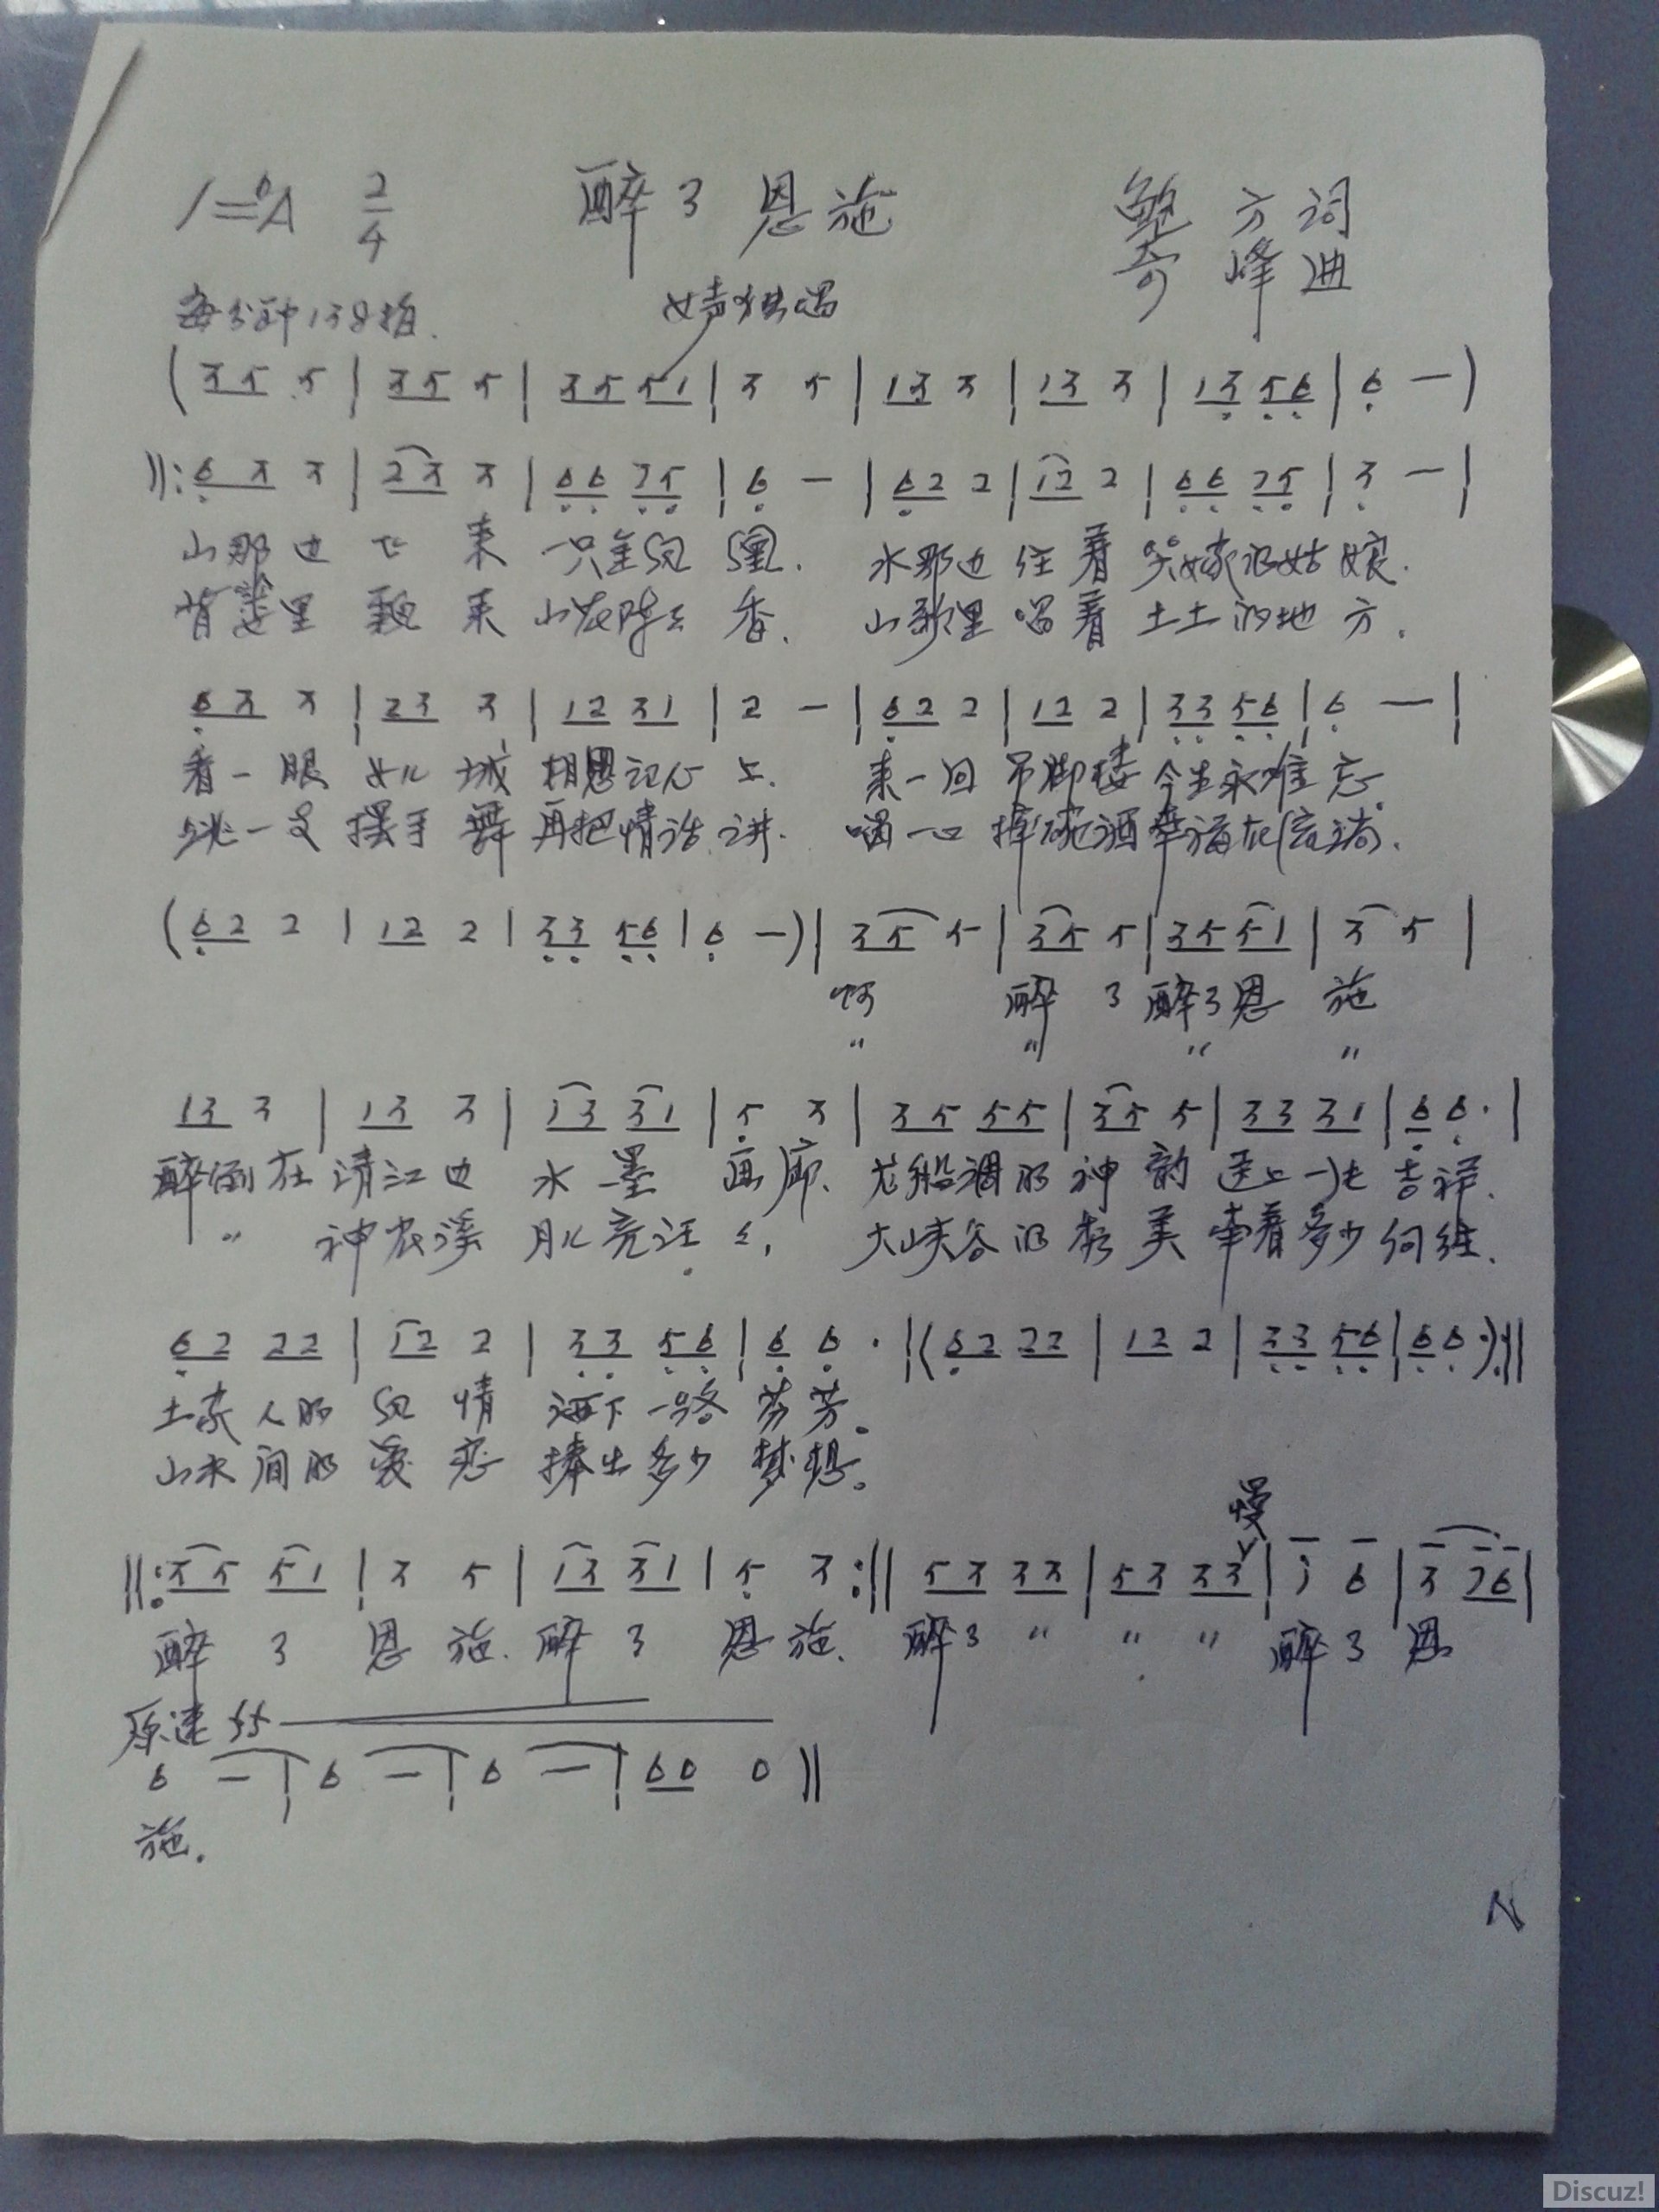 1=♭A 2/4 醉了恩施 鲍方词
奇峰曲
每分钟138拍. 女声独唱
( 35 5 | 35 5 | 35 51 | 3 5 | 13 3 | 13 3 | 13 56 | 6 — )
‖: 63 3 | 23 3 | 66 75 | 6 — | 62 2 | 12 2 | 66 75 | 3 — |
山那边飞来一只金凤凰. 水那边住着哭嫁的姑娘.
背篓里飘来山花阵阵香. 山歌里唱着土土的地方.
63 3 | 23 3 | 12 31 | 2 — | 62 2 | 12 2 | 33 56 | 6 — |
看一眼女儿城相思记心上. 来一回吊脚楼今生永难忘.
跳一支摆手舞再把情话讲. 喝一口摔碗酒幸福在流淌.
( 62 2 | 12 2 | 33 56 | 6 — ) | 35 5 | 35 5 | 35 51 | 3 5 |
啊 醉了醉了恩施
〃 〃 〃 〃
13 3 | 13 3 | 13 31 | 5 3 | 35 55 | 35 5 | 33 31 | 6 6· |
醉倒在清江边水墨画廊. 龙船调的神韵送上一吉祥.
〃 神农溪月儿亮汪 大峡谷的美牵着多少向往.
62 22 | 12 2 | 33 56 | 6 6· | ( 62 22 | 12 2 | 33 56 | 6 6· ) :‖
土家人的风情洒下一路芬芳。
山水间的爱恋捧出多少梦想。
慢
‖: 35 51 | 3 5 | 13 31 | 5 3 :‖ 53 33 | 53 33 | 1 6 | 3 76 |
醉了恩施. 醉了恩施. 醉了 〃 〃 〃 醉了恩
原速 ff
6 — | 6 — | 6 — | 60 0 ‖
施.
Discuz!